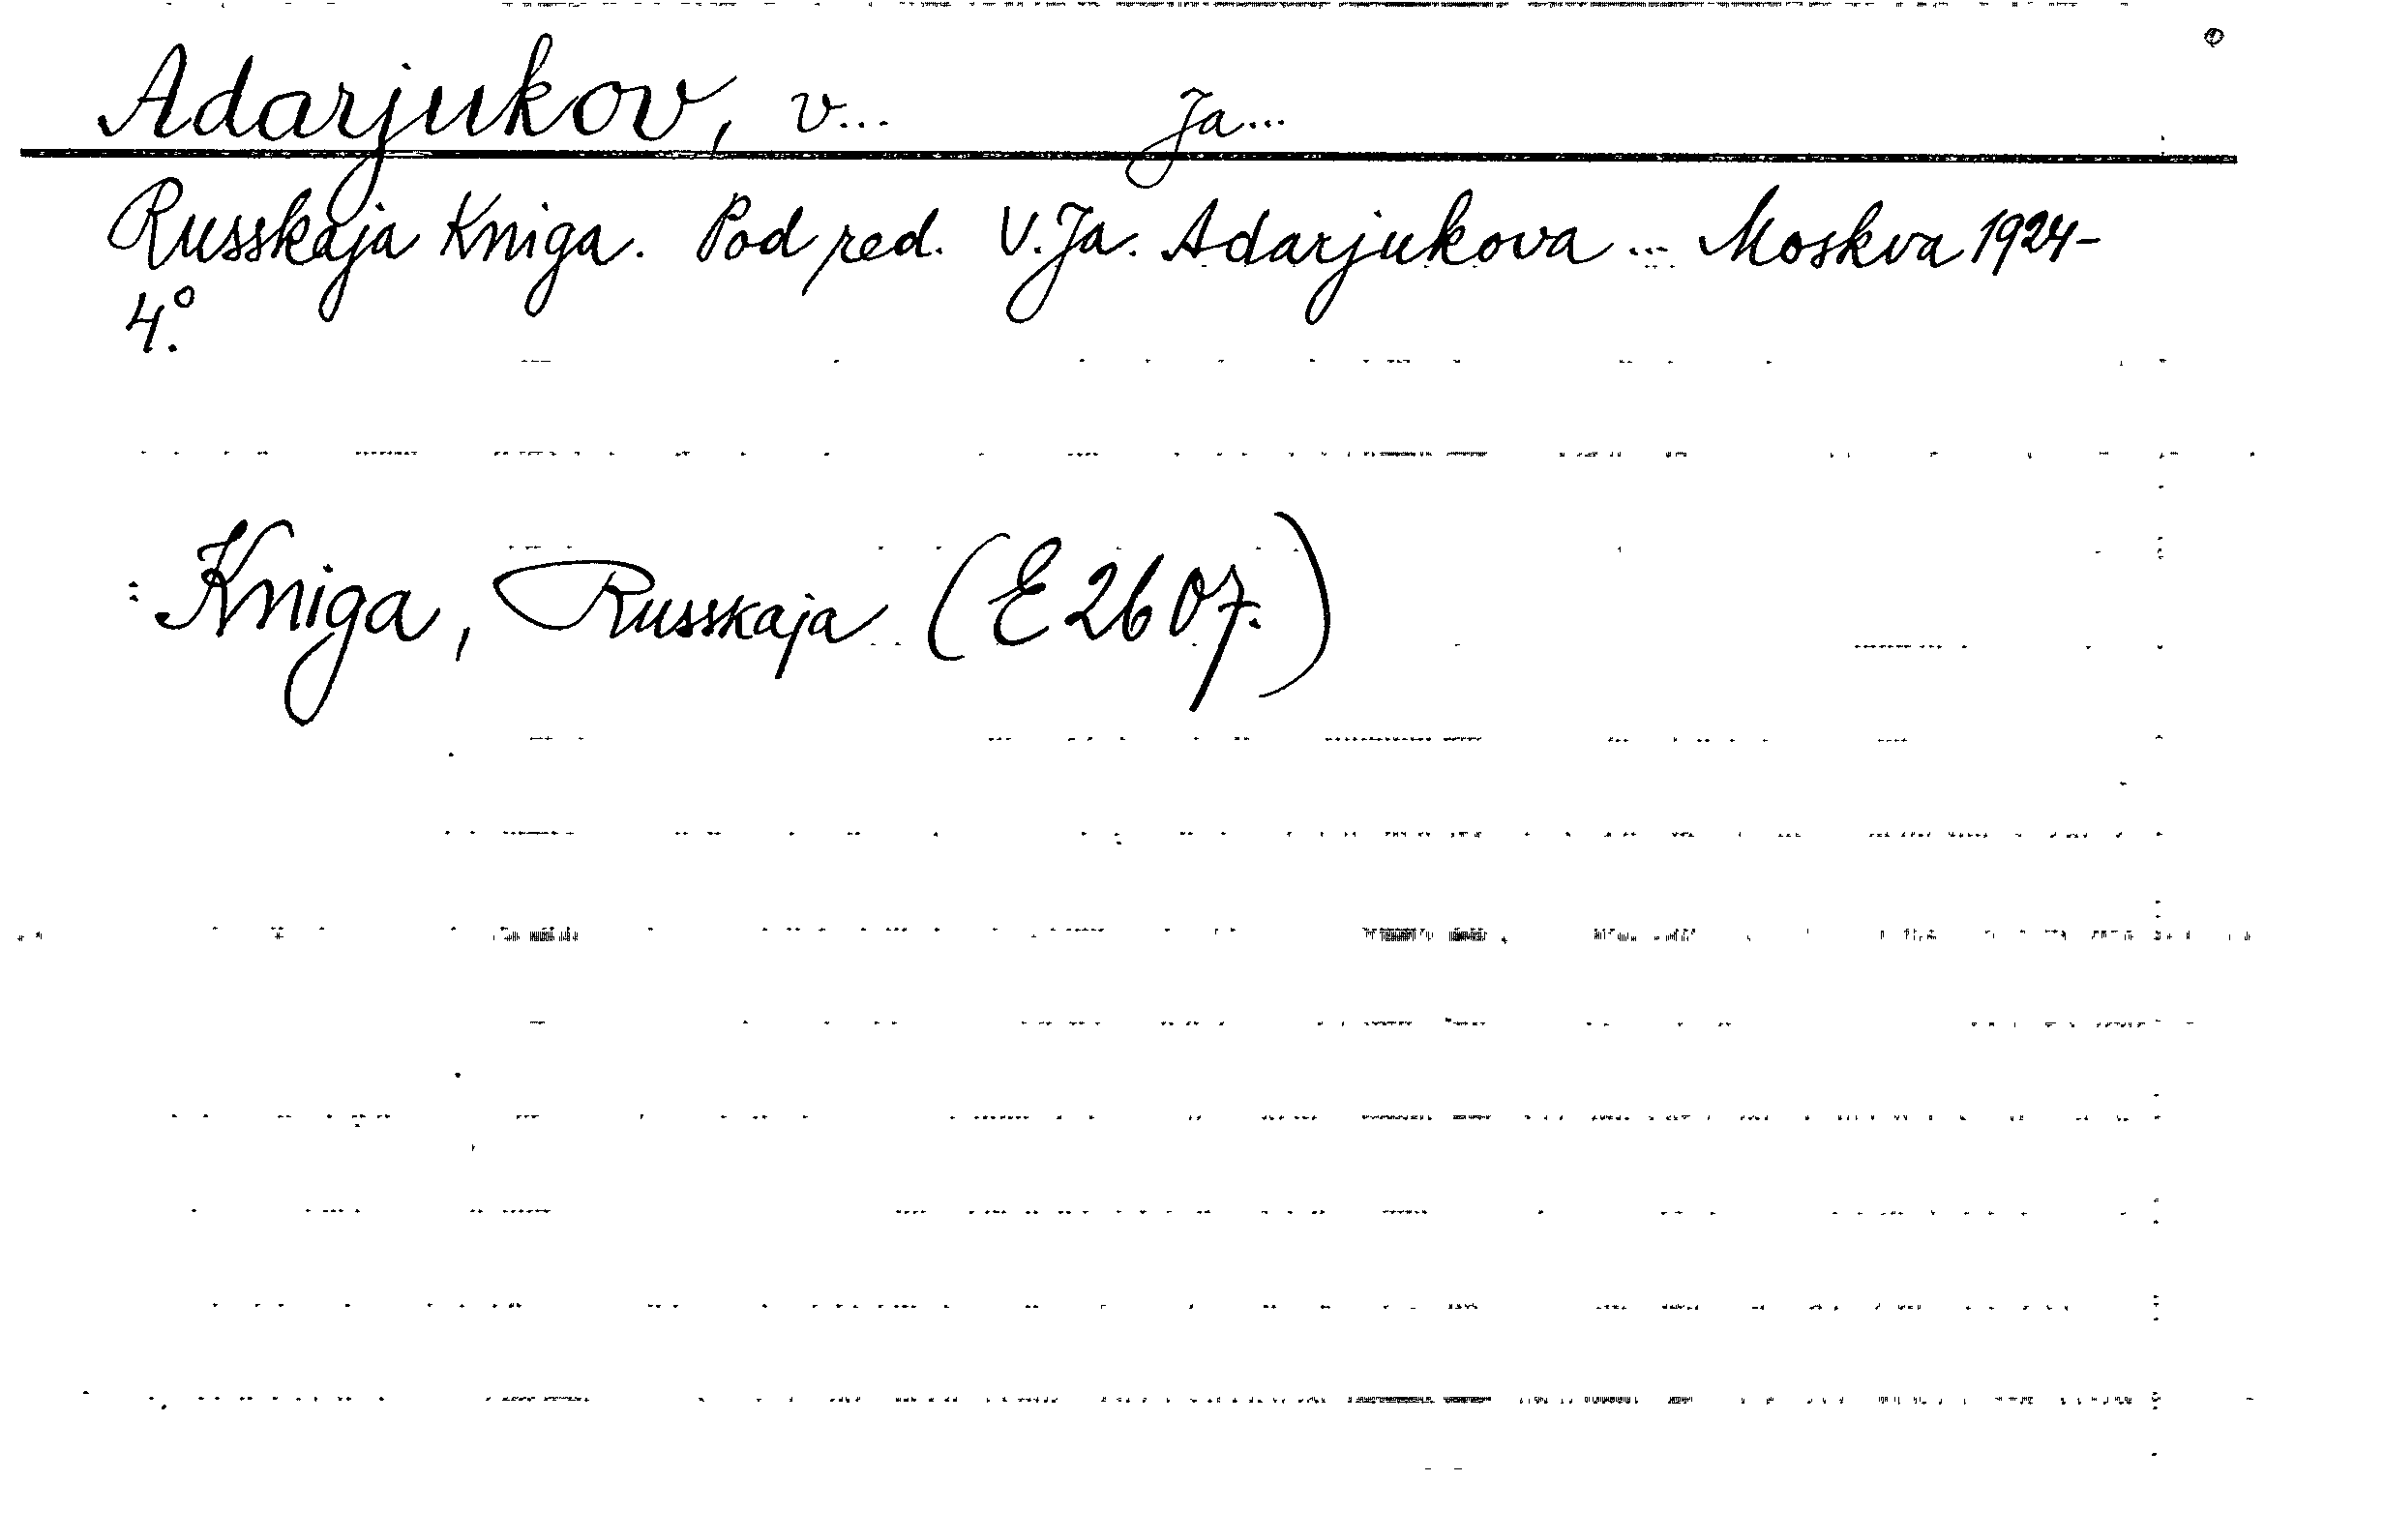 Adarjukov, V... Ja...
Russkaja Kniga. Pod red. V. Ja. Adarjukova ... Moskva 1924-
4.°
: Kniga, Russkaja (E 2607.)